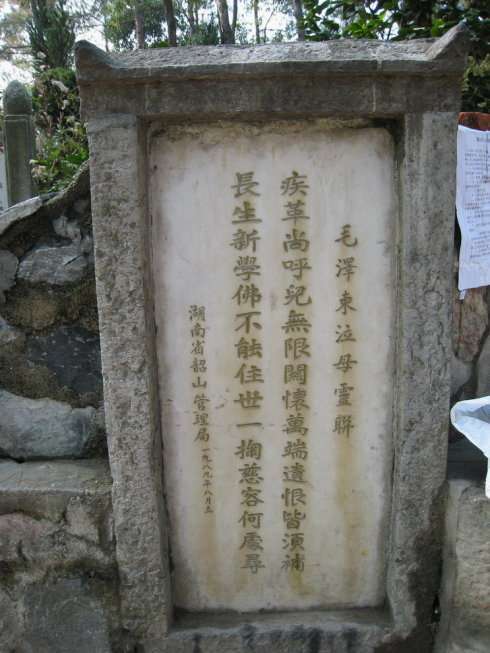 毛澤東泣母靈聯
疾革尚呼兒無限關懷萬端遺恨皆須補
長生新學佛不能住世一掬慈容何處尋
湖南省韶山管理局一九八九年八月立